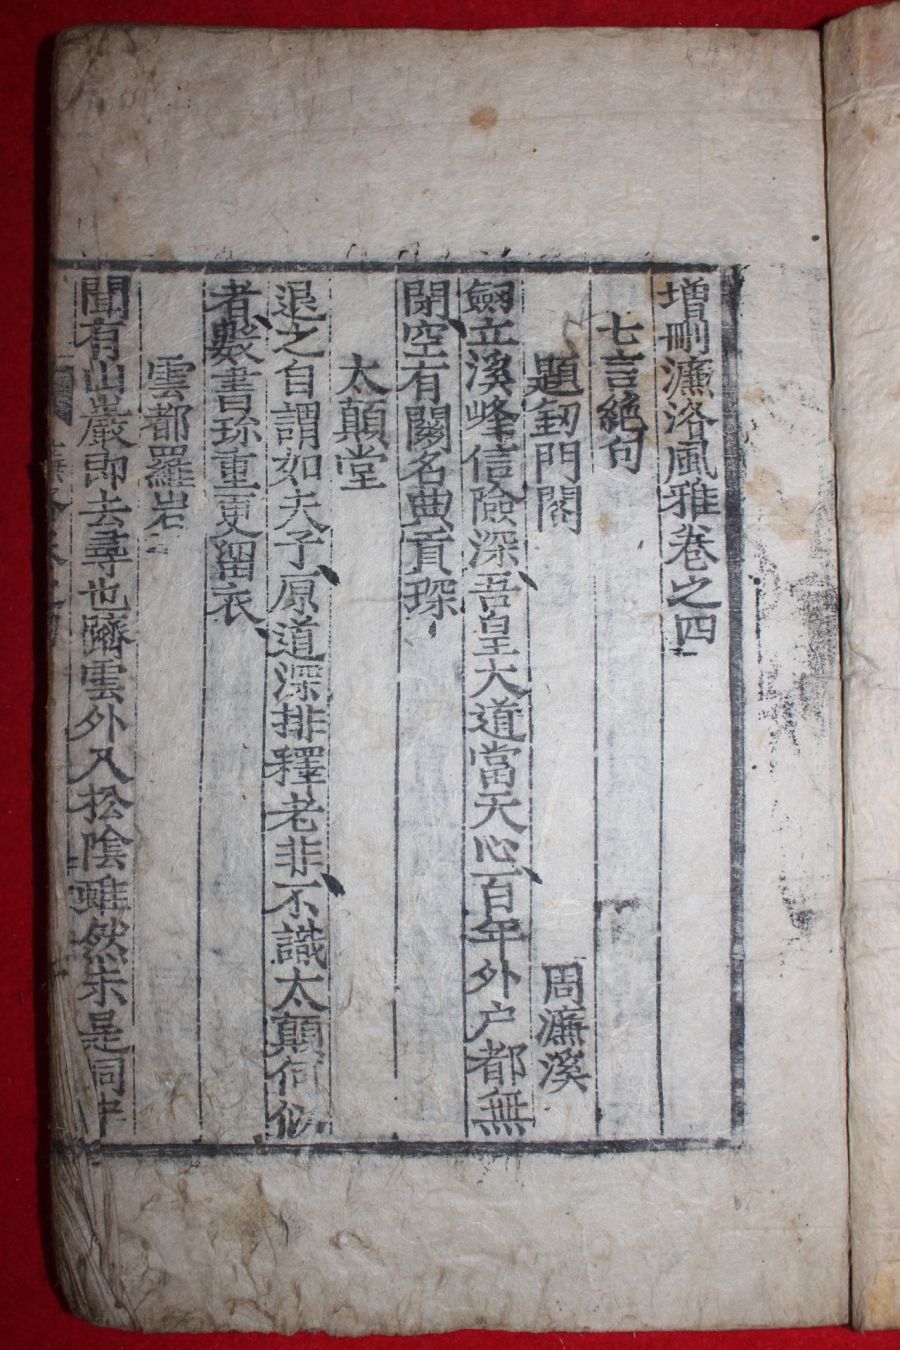 增刪濂洛風雅卷之四
七言絶句
題劒門閣 周濂溪
劒立溪峰信險深吾皇大道當天心百年外户都無
閉空有關名典貢琛
太顛堂
退之自謂如夫子原道深排釋老非不識太顛何似
者數書珍重更留衣
雲都羅岩
聞有山巖即去尋也躋雲外入松陰雖然未是洞中